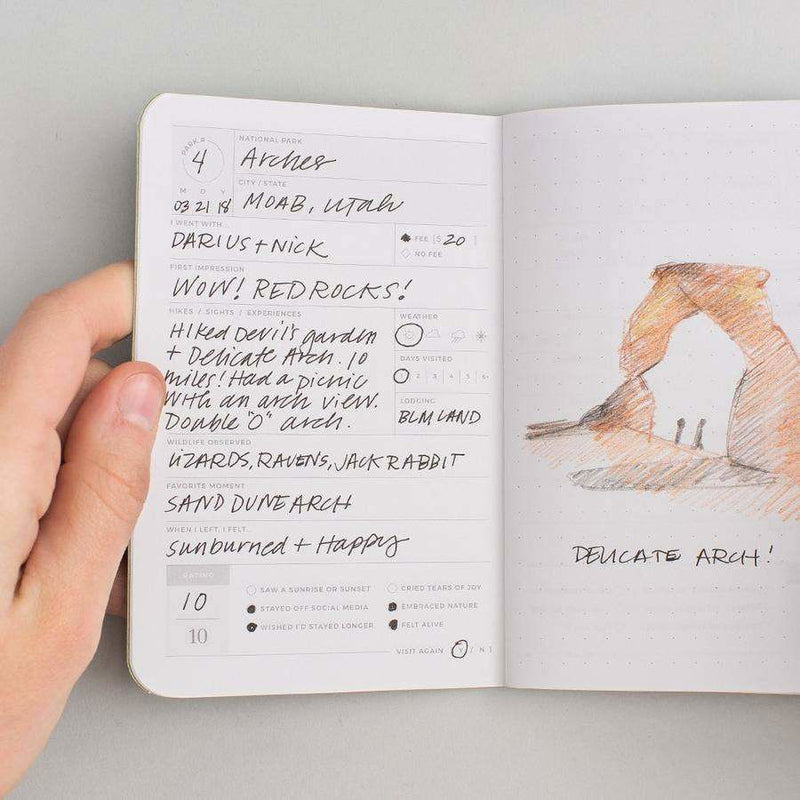 PARK #
4
NATIONAL PARK
Arches
CITY / STATE
MOAB, Utah
M D Y
03 21 18
I WENT WITH...
DARIUS + NICK
FEE [$ 20 ]
NO FEE
FIRST IMPRESSION
WOW! RED ROCKS!
HIKES / SIGHTS / EXPERIENCES
Hiked Devil's garden
+ Delicate Arch. 10
miles! Had a picnic
with an arch view.
Double "O" arch.
WEATHER
DAYS VISITED
2 3 4 5 6+
LODGING
BLM LAND
WILDLIFE OBSERVED
LIZARDS, RAVENS, JACK RABBIT
FAVORITE MOMENT
SAND DUNE ARCH
WHEN I LEFT, I FELT...
sunburned + Happy
RATING
10
10
SAW A SUNRISE OR SUNSET
CRIED TEARS OF JOY
STAYED OFF SOCIAL MEDIA
EMBRACED NATURE
WISHED I'D STAYED LONGER
FELT ALIVE
VISIT AGAIN [ Y / N ]
DELICATE ARCH!